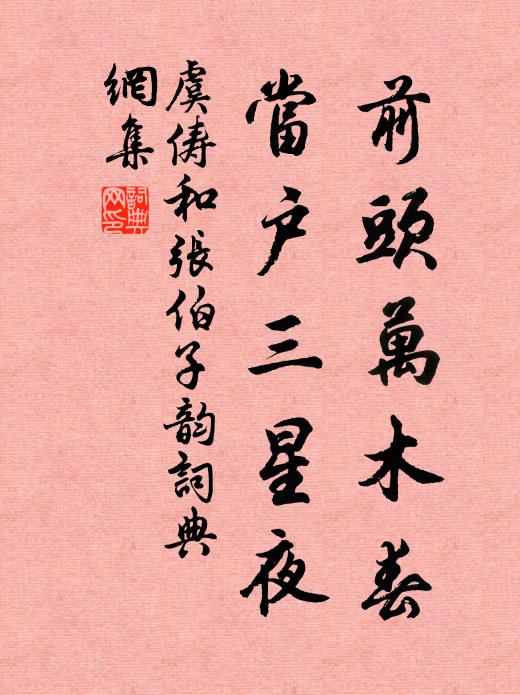 前頭萬木春
當户三星夜
虞儔和張伯子韵詞典
網集
詞典
网印